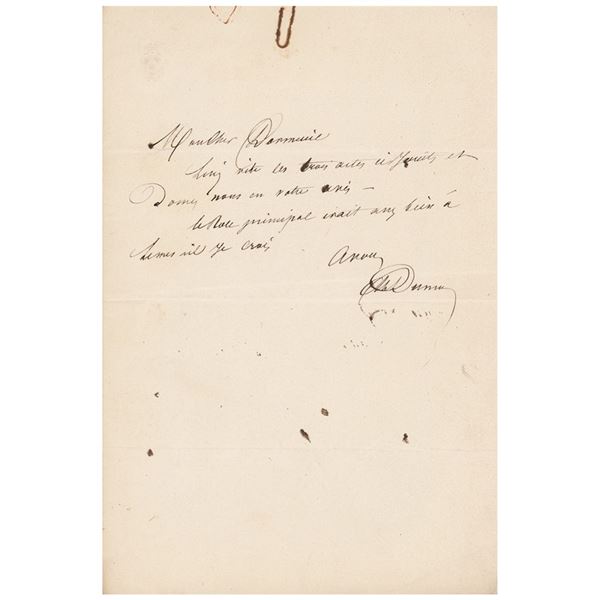 Mon cher Dormeuil
Lisez vite les trois actes ci joints et
Donnez nous en votre avis —
le Role principal irait assez bien à
Lemesnil je crois
A vous
Alex Dumas